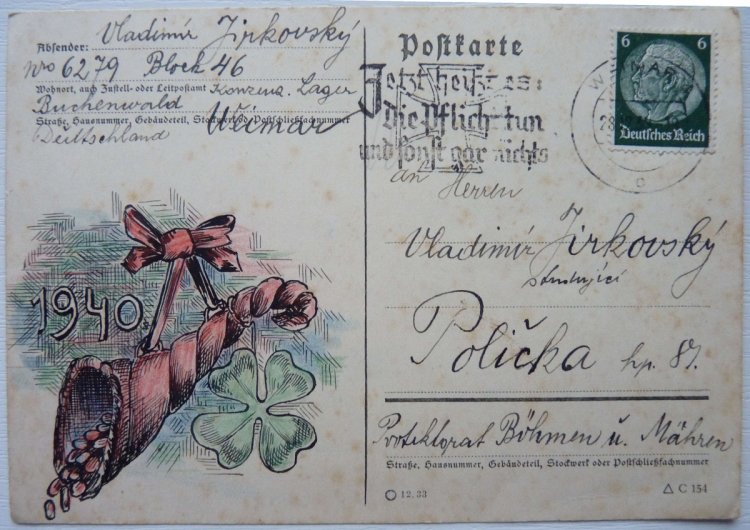 Absender: Vladimír Jirkovský
nro 6279 Block 46
Wohnort, auch Zustell- oder Leitpostamt Konzens. Lager
Buchenwald Weimar
Straße, Hausnummer, Gebäudeteil, Stockwerk od. Postschließfachnummer
Deutschland
1940
Postkarte
Jetzt heißt es:
die Pflicht tun
und sonst gar nichts
6 6
Deutsches Reich
an Herren
Vladimír Jirkovský
studující
Polička hp. 87.
Protektorat Böhmen u. Mähren
Straße, Hausnummer, Gebäudeteil, Stockwerk oder Postschließfachnummer
12.33
C 154